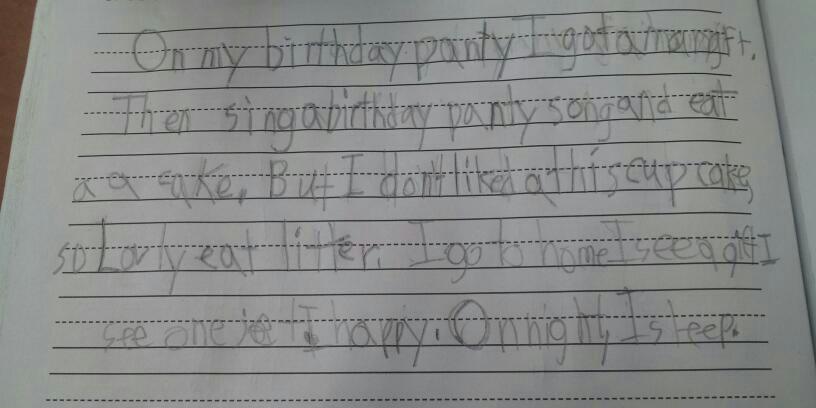 On my birthday panty I got a many gift.
Then sing a birthday panty song and eat
a a cake. But I don't liked a this cup cake,
so I only eat litter. I go to home I see a gift I
see one I happy. On night, I sleep.